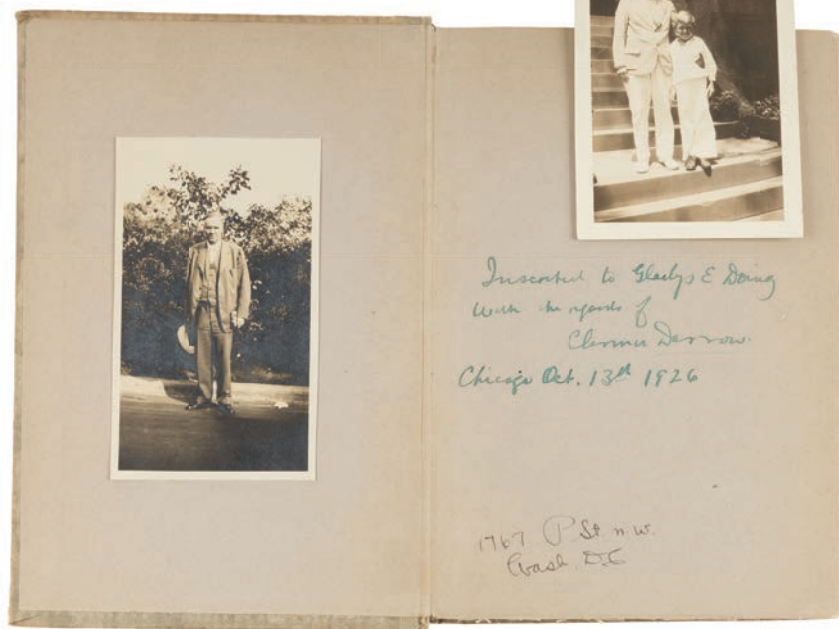 Inscribed to Gladys E Doing
With the regards of
Clarence Darrow.
Chicago Oct. 13th 1926
1767 P St. n.w.
Wash. D.C